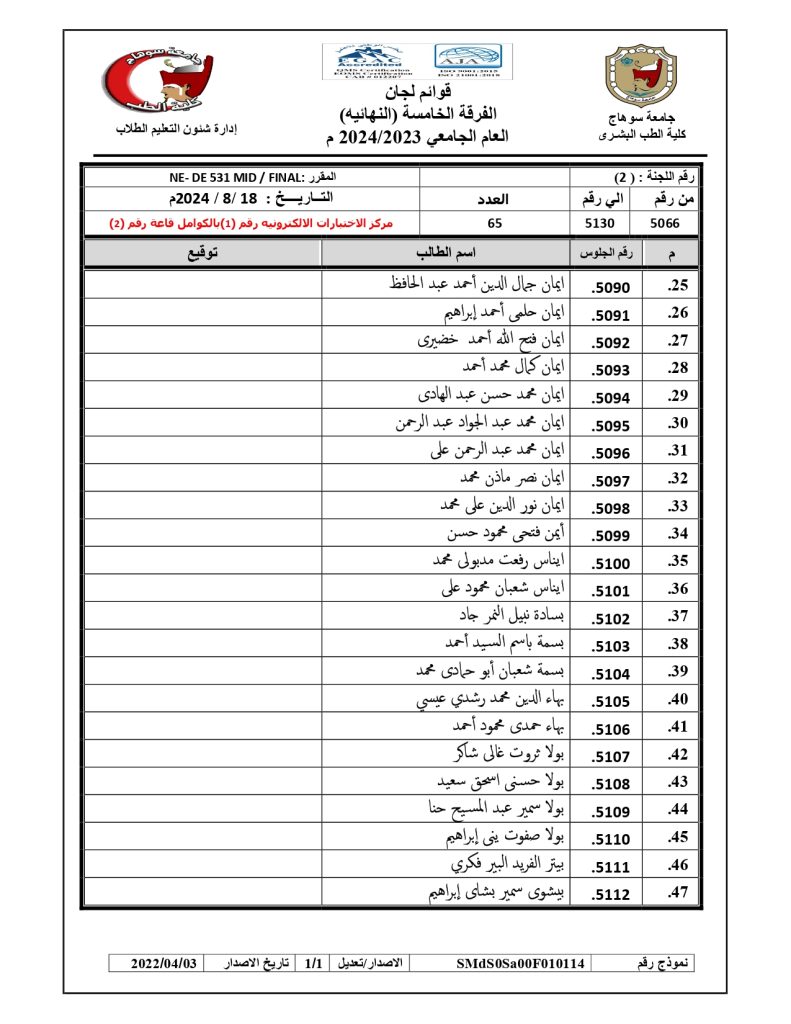 جامعة سوهاج
كلية الطب البشرى
EGAC
Accredited
QMS Certification
EOMS Certification
CAB # 012207
AJA
ISO 9001:2015
ISO 21001:2018
قوائم لجان
الفرقة الخامسة (النهائيه)
العام الجامعي 2024/2023 م
جامعة سوهاج
كلية الطب
إدارة شئون التعليم الطلاب
رقم اللجنة : ( 2) المقرر :NE- DE 531 MID / FINAL
من رقم الي رقم العدد التـاريـــخ : 18 /8 / 2024م
5066 5130 65 مركز الاختبارات الالكترونيه رقم (1)بالكوامل قاعة رقم (2)
م رقم الجلوس اسم الطالب توقيع
25. 5090. ايمان جمال الدين أحمد عبد الحافظ
26. 5091. ايمان حلمى أحمد إبراهيم
27. 5092. ايمان فتح الله أحمد خضيرى
28. 5093. ايمان كمال محمد أحمد
29. 5094. ايمان محمد حسن عبد الهادى
30. 5095. ايمان محمد عبد الجواد عبد الرحمن
31. 5096. ايمان محمد عبد الرحمن على
32. 5097. ايمان نصر ماذن محمد
33. 5098. ايمان نور الدين على محمد
34. 5099. أيمن فتحى محمود حسن
35. 5100. ايناس رفعت مدبولى محمد
36. 5101. ايناس شعبان محمود على
37. 5102. بسادة نبيل النمر جاد
38. 5103. بسمة باسم السيد أحمد
39. 5104. بسمة شعبان أبو حمادى محمد
40. 5105. بهاء الدين محمد رشدي عيسي
41. 5106. بهاء حمدى محمود أحمد
42. 5107. بولا ثروت غالى شاكر
43. 5108. بولا حسنى اسحق سعيد
44. 5109. بولا سمير عبد المسيح حنا
45. 5110. بولا صفوت ينى إبراهيم
46. 5111. بيتر الفريد البير فكري
47. 5112. بيشوى سمير بشاى إبراهيم
نموذج رقم SMdS0Sa00F010114 الاصدار/تعديل 1/1 تاريخ الاصدار 2022/04/03